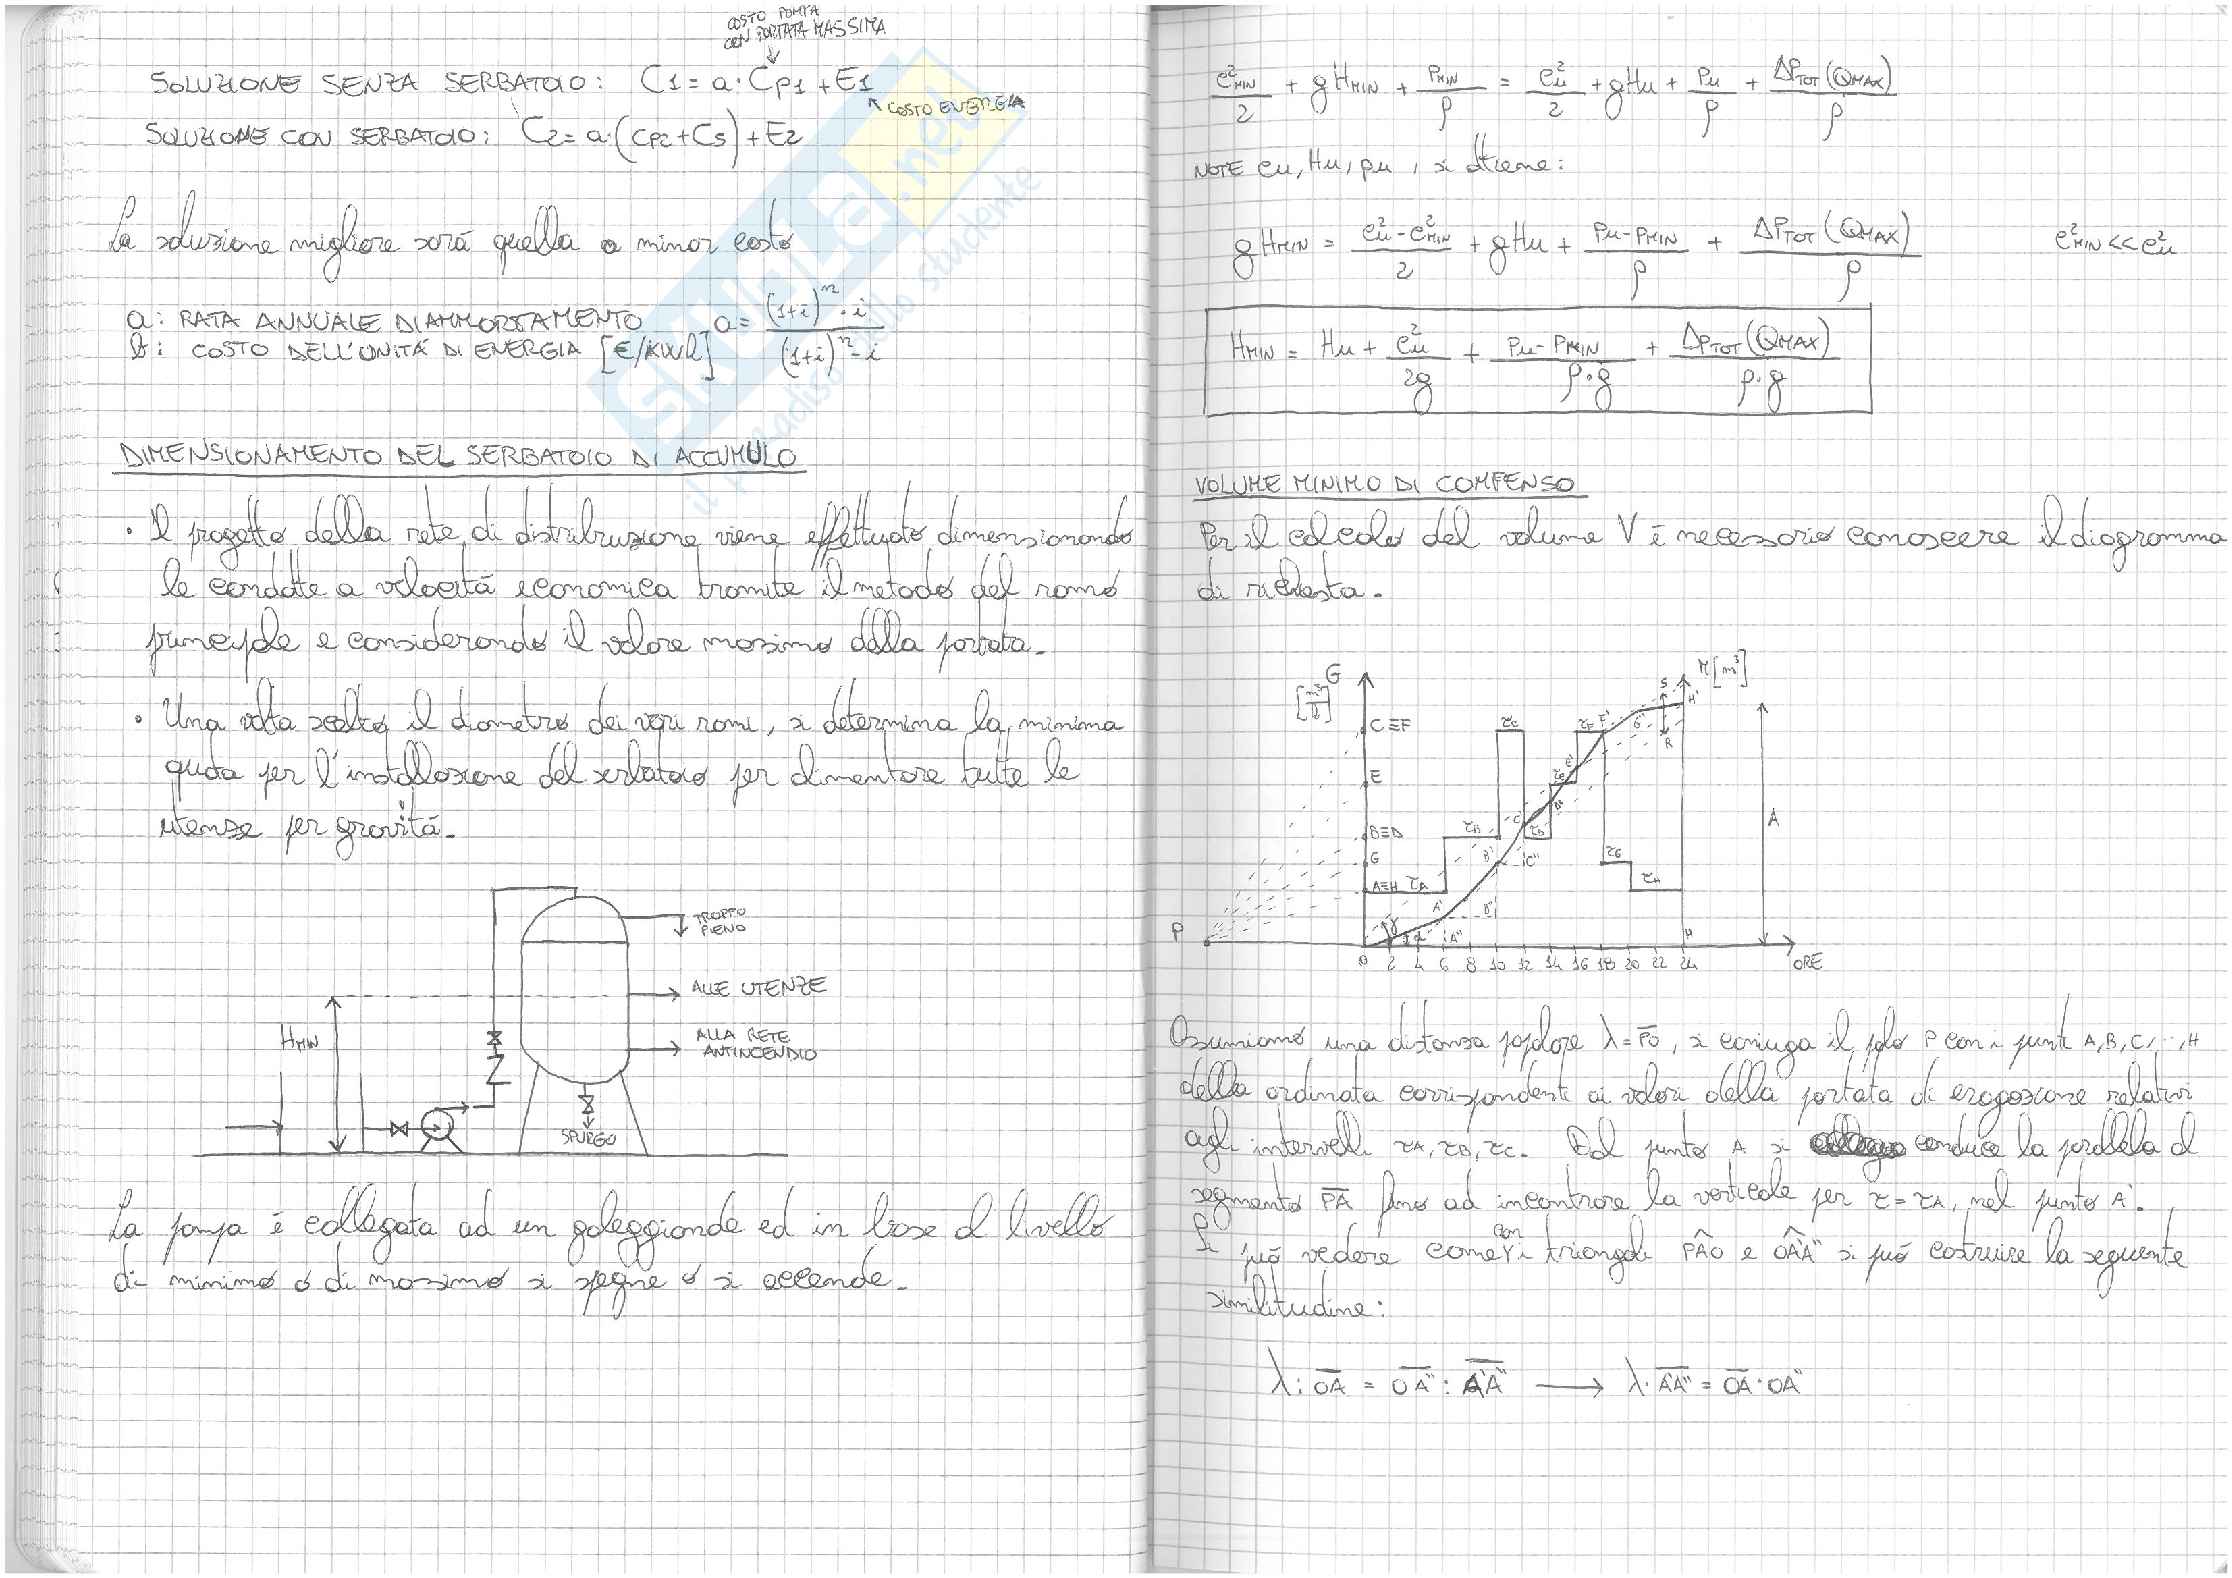 COSTO POMPA
CON PORTATA MASSIMA
SOLUZIONE SENZA SERBATOIO: C1 = a · Cp1 + E1
COSTO ENERGIA
SOLUZIONE CON SERBATOIO: C2 = a · (Cp2 + Cs) + E2
La soluzione migliore sarà quella a minor costo
a: RATA ANNUALE DI AMMORTAMENTO a = (1+i)^n · i / (1+i)^n - i
b: COSTO DELL'UNITÀ DI ENERGIA [€/kWh]
DIMENSIONAMENTO DEL SERBATOIO DI ACCUMULO
• Il progetto della rete di distribuzione viene effettuato dimensionando
le condotte a velocità economica tramite il metodo del ramo
principale e considerando il valore massimo della portata.
• Una volta scelto il diametro dei vari rami, si determina la minima
quota per l'installazione del serbatoio per alimentare tutte le
utenze per gravità.
TROPPO
PIENO
ALLE UTENZE
ALLA RETE
ANTINCENDIO
HMIN
SPURGO
La pompa è collegata ad un galleggiante ed in base al livello
di minimo o di massimo si spegne o si accende.
SKUOLA.net
il paradiso dello studente
c²MIN/2 + gHMIN + PMIN/ρ = c²u/2 + gHu + Pu/ρ + ΔPTOT(QMAX)/ρ
NOTE cu, Hu, pu, si ottiene:
gHMIN = c²u - c²MIN/2 + gHu + Pu - PMIN/ρ + ΔPTOT(QMAX)/ρ c²MIN << c²u
HMIN = Hu + c²u/2g + Pu - PMIN/ρ·g + ΔPTOT(QMAX)/ρ·g
VOLUME MINIMO DI COMPENSO
Per il calcolo del volume V è necessario conoscere il diagramma
di richiesta.
G [m³/h]
M [m³]
C≡F
E
B≡D
G
A≡H
P
A
0 2 4 6 8 10 12 14 16 18 20 22 24 ORE
Assumiamo una distanza polare λ = PO, si coniuga il polo P con i punti A, B, C, ..., H
della ordinata corrispondenti ai valori della portata di erogazione relativi
agli intervalli τA, τB, τC. Dal punto A si conduce la parallela al
segmento PA fino ad incontrare la verticale per τ = τA, nel punto A'.
Si può vedere come con i triangoli PÂO e OÂ'A" si può costruire la seguente
similitudine:
λ : OA = OA" : A'A" → λ · A'A" = OA · OA"